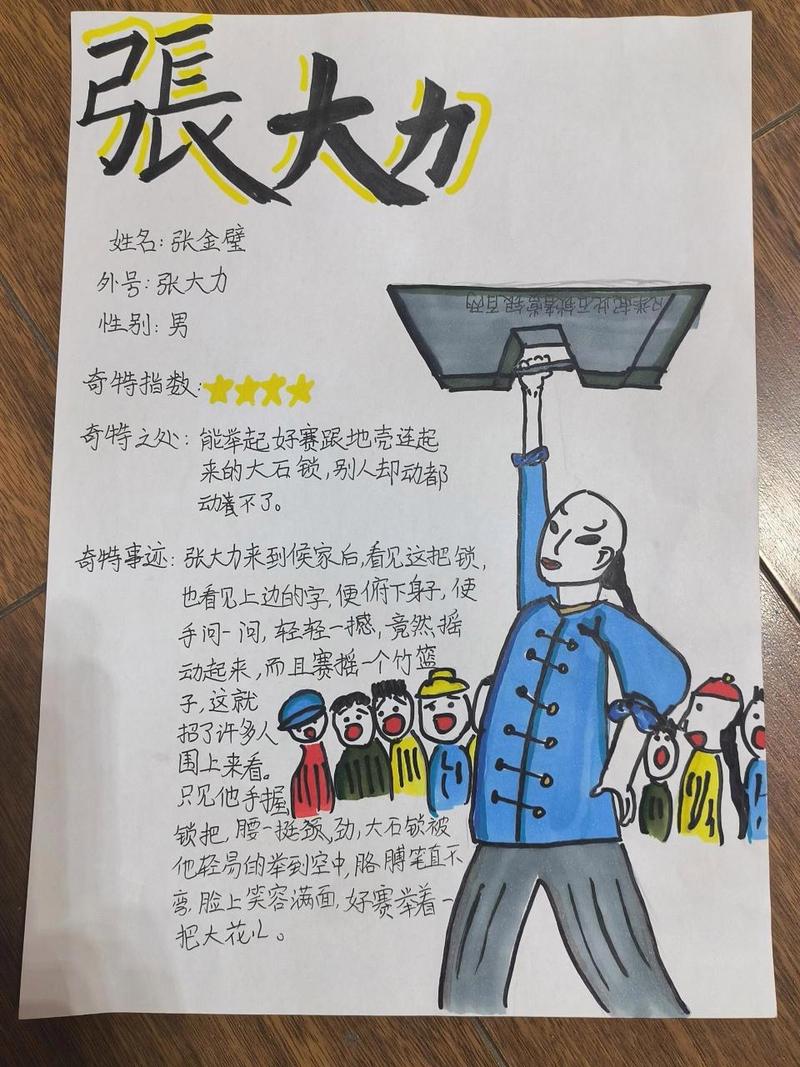 張大力
姓名：张金璧
外号：张大力
性别：男
奇特指数：
只举起此石锁者赏银百两
奇特之处：能举起好赛跟地壳连起
来的大石锁，别人却动都
动撻不了。
奇特事迹：张大力来到侯家后，看见这把锁，
也看见上边的字，便俯下身子，使
手问一问，轻轻一撼，竟然摇
动起来，而且赛摇一个竹篮
子，这就
招了许多人
围上来看。
只见他手握
锁把，腰一挺颈，劲，大石锁被
他轻易的举到空中，胳膊笔直不
弯，脸上笑容满面，好赛举着一
把大花儿。